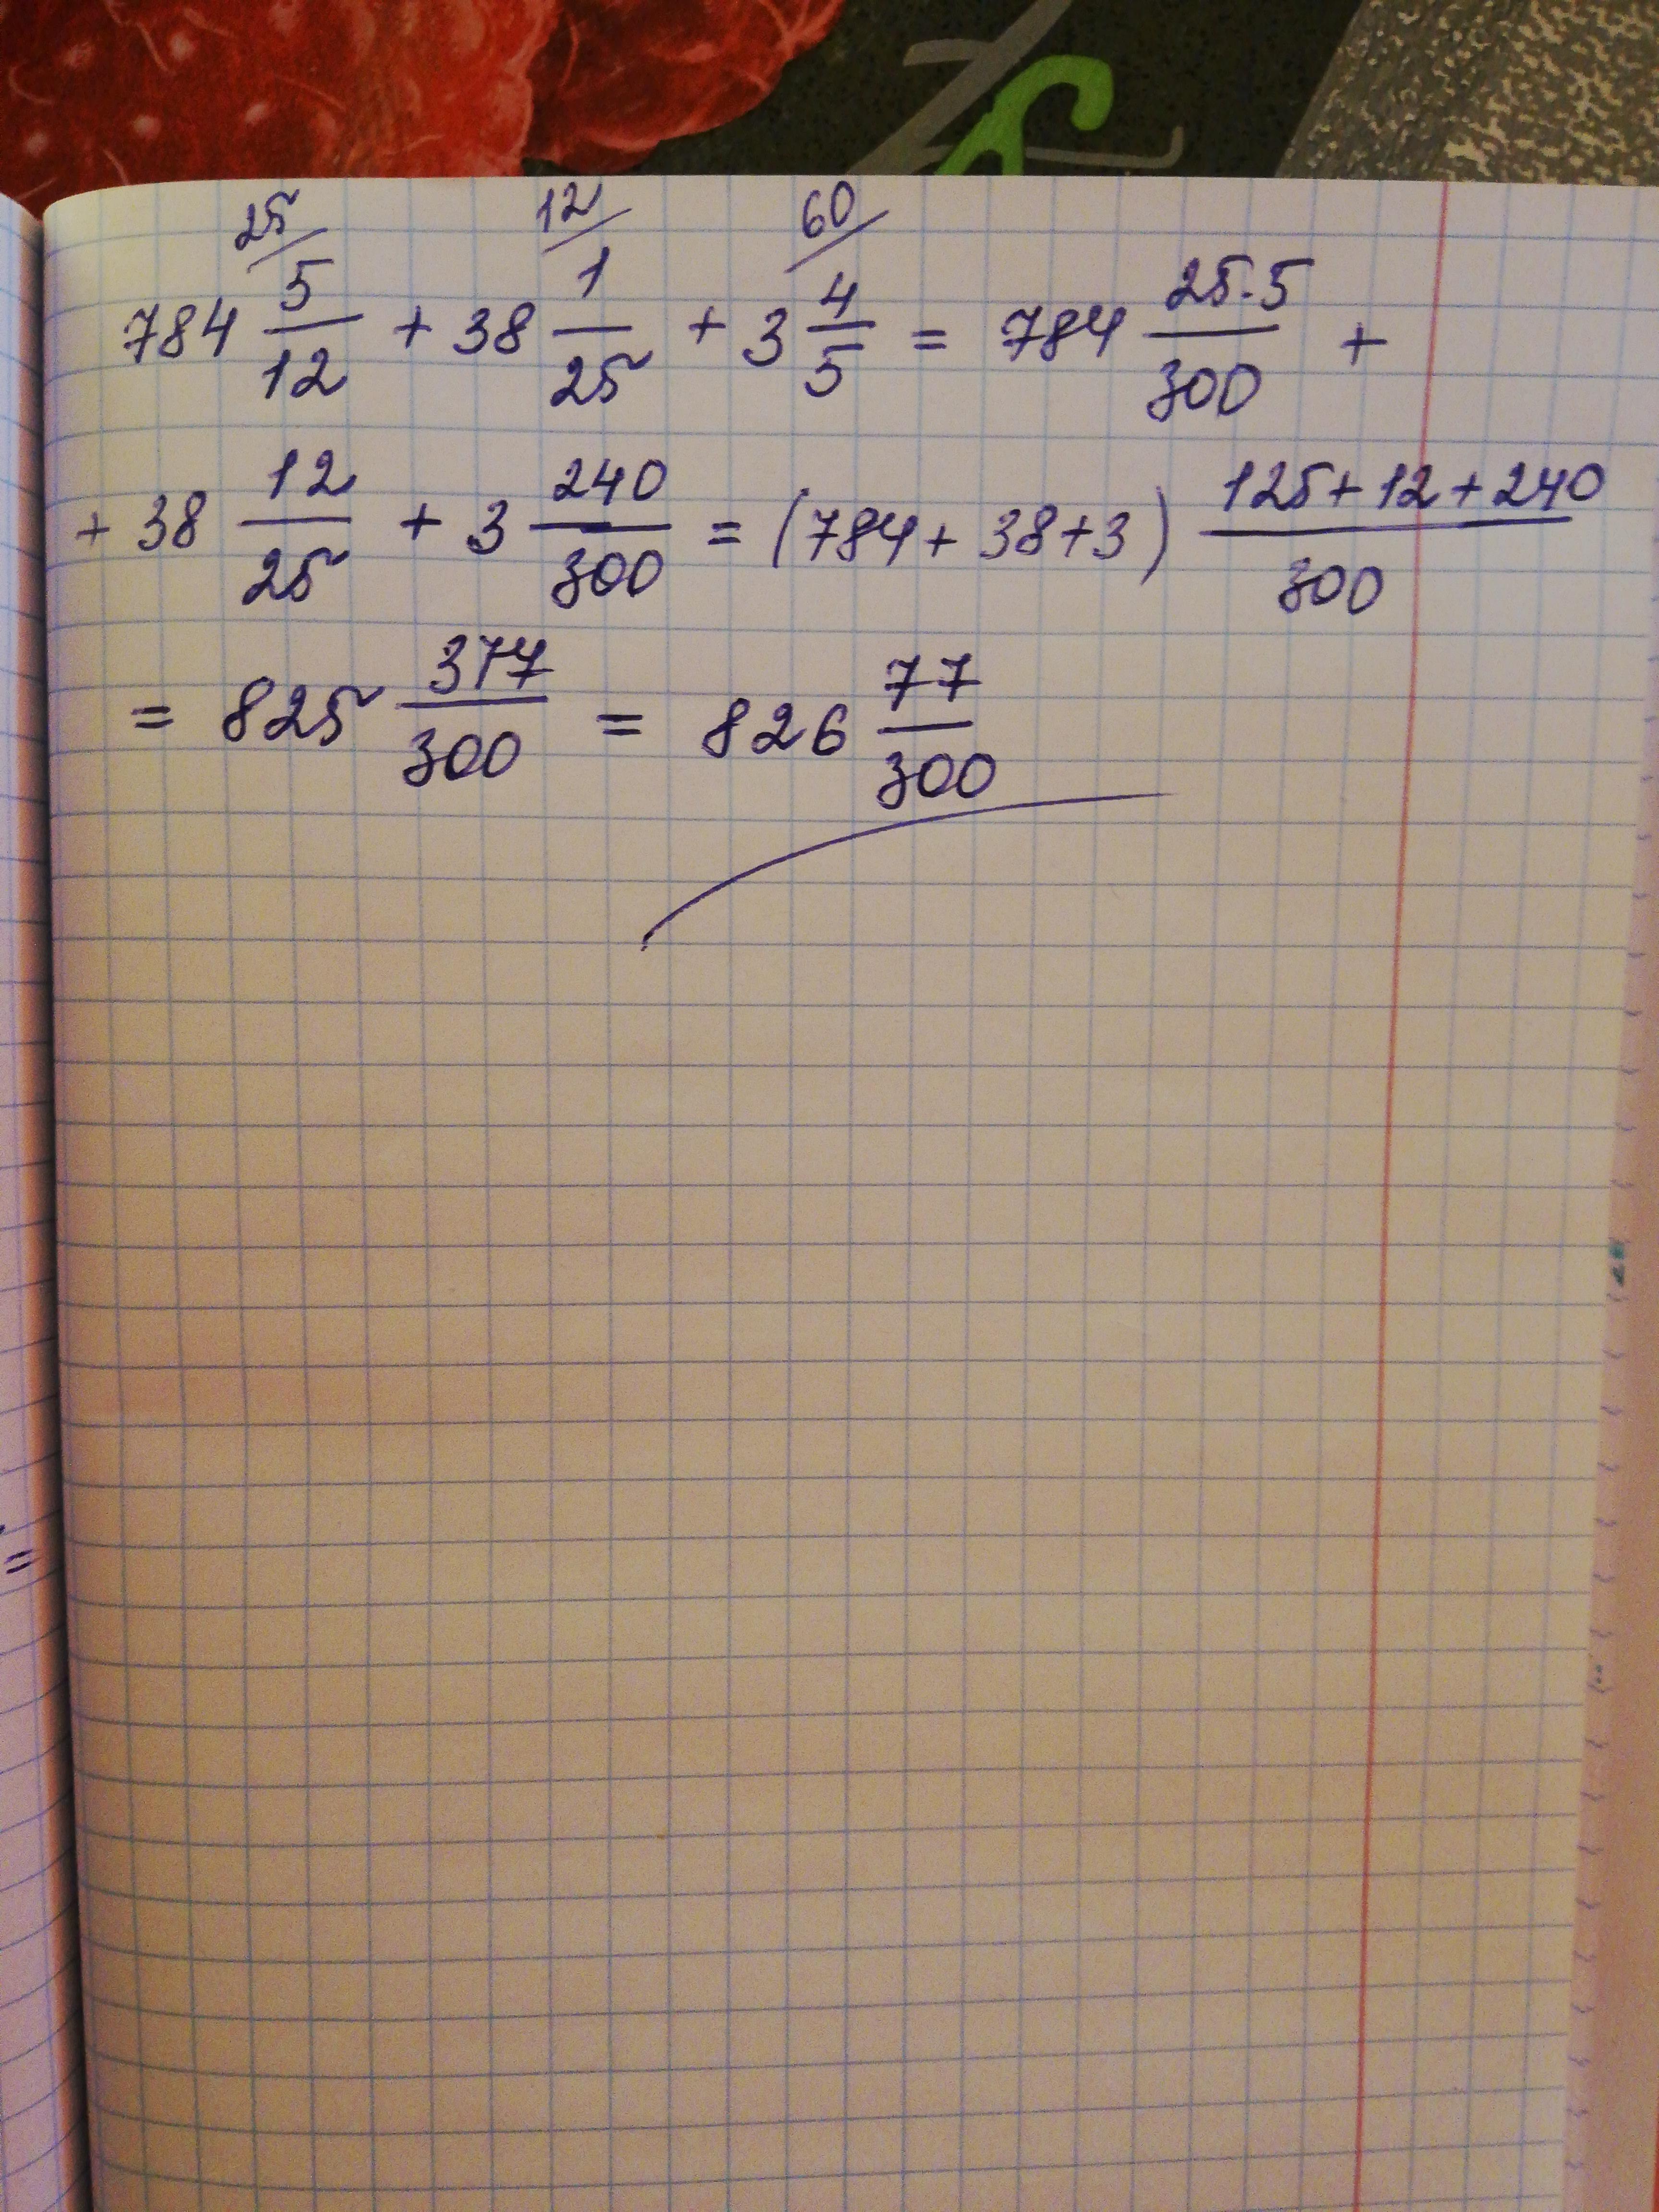 25/ 12/ 60/
784 5/12 + 38 1/25 + 3 4/5 = 784 25·5/300 +
+ 38 12/25 + 3 240/300 = (784 + 38 + 3) 125 + 12 + 240/300
= 825 377/300 = 826 77/300
=